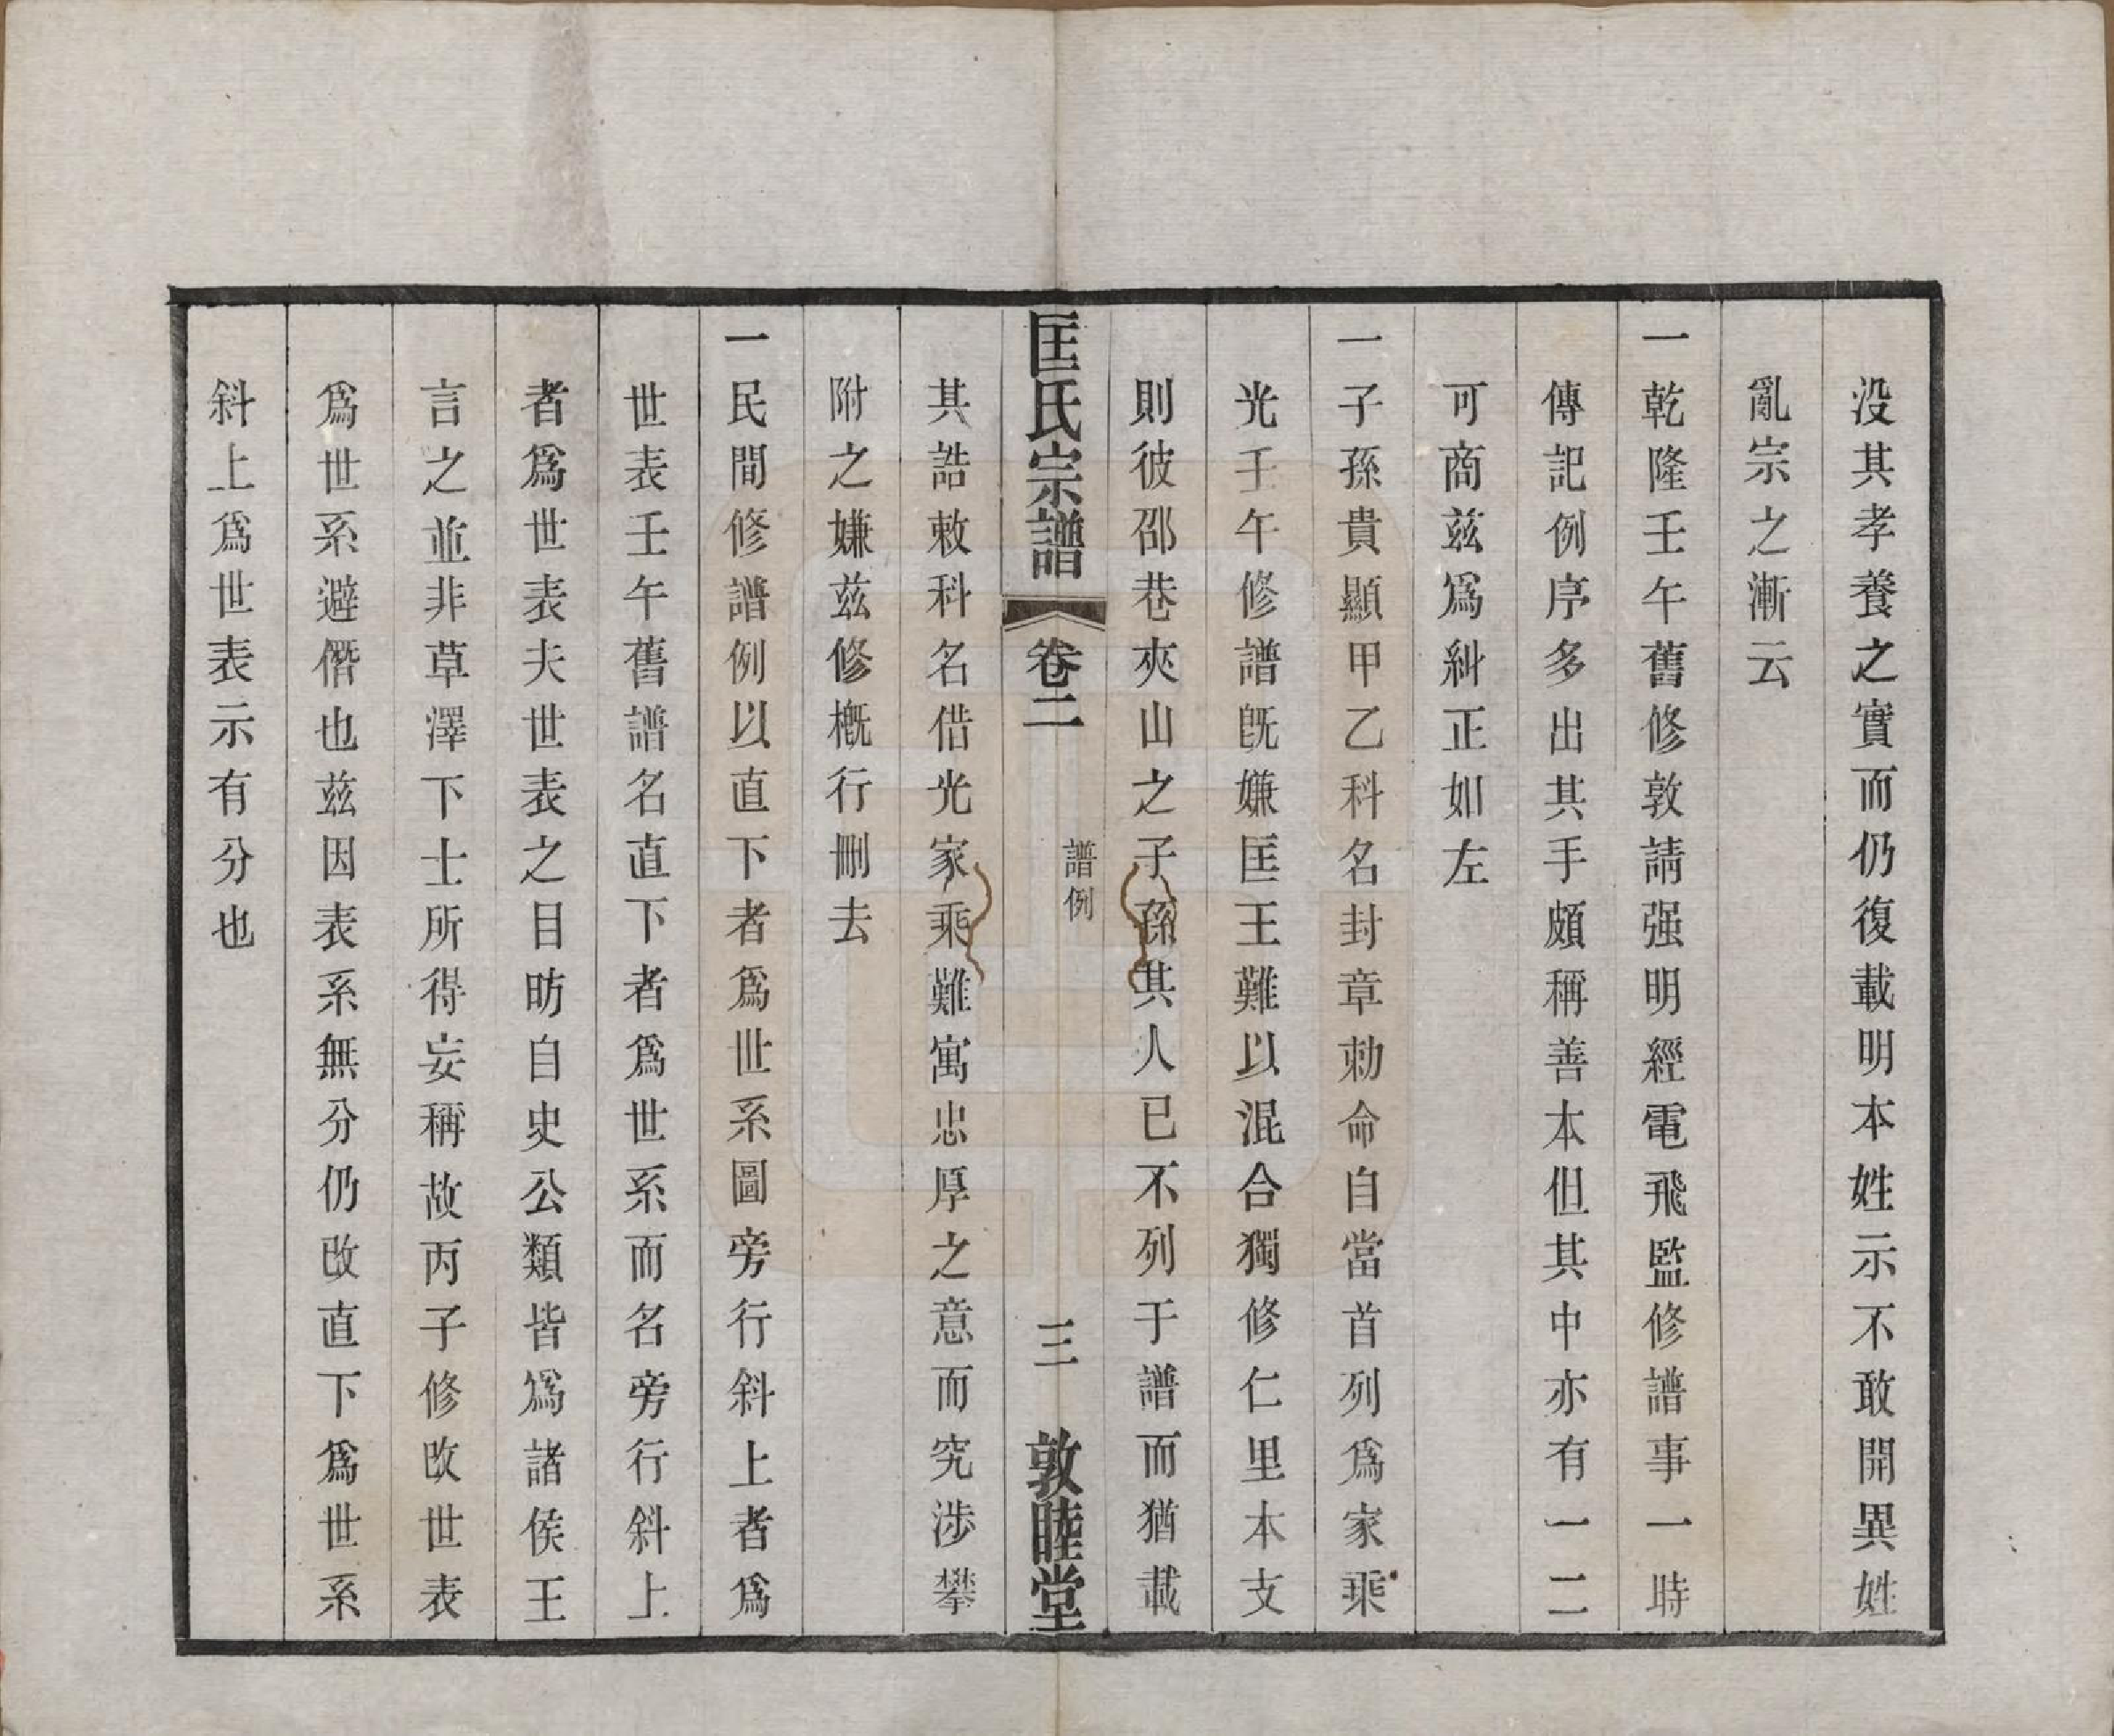 没其孝養之實而仍復載明本姓示不敢開異姓
亂宗之漸云
一乾隆壬午舊修敦請强明經電飛監修譜事一時
傳記例序多出其手頗稱善本但其中亦有一二
可商兹爲糾正如左
一子孫貴顯甲乙科名封章勅命自當首列爲家乘
光壬午修譜旣嫌匡王難以混合獨修仁里本支
則彼邵巷夾山之子孫其人已不列于譜而猶載
匡氏宗譜 卷二 譜例 三 敦睦堂
其誥敕科名借光家乘難寓忠厚之意而究涉攀
附之嫌兹修槪行刪去
一民間修譜例以直下者爲世系圖旁行斜上者爲
世表壬午舊譜名直下者爲世系而名旁行斜上
者爲世表夫世表之目昉自史公類皆爲諸侯王
言之並非草澤下士所得妄稱故丙子修改世表
爲世系避僭也兹因表系無分仍改直下爲世系
斜上爲世表示有分也